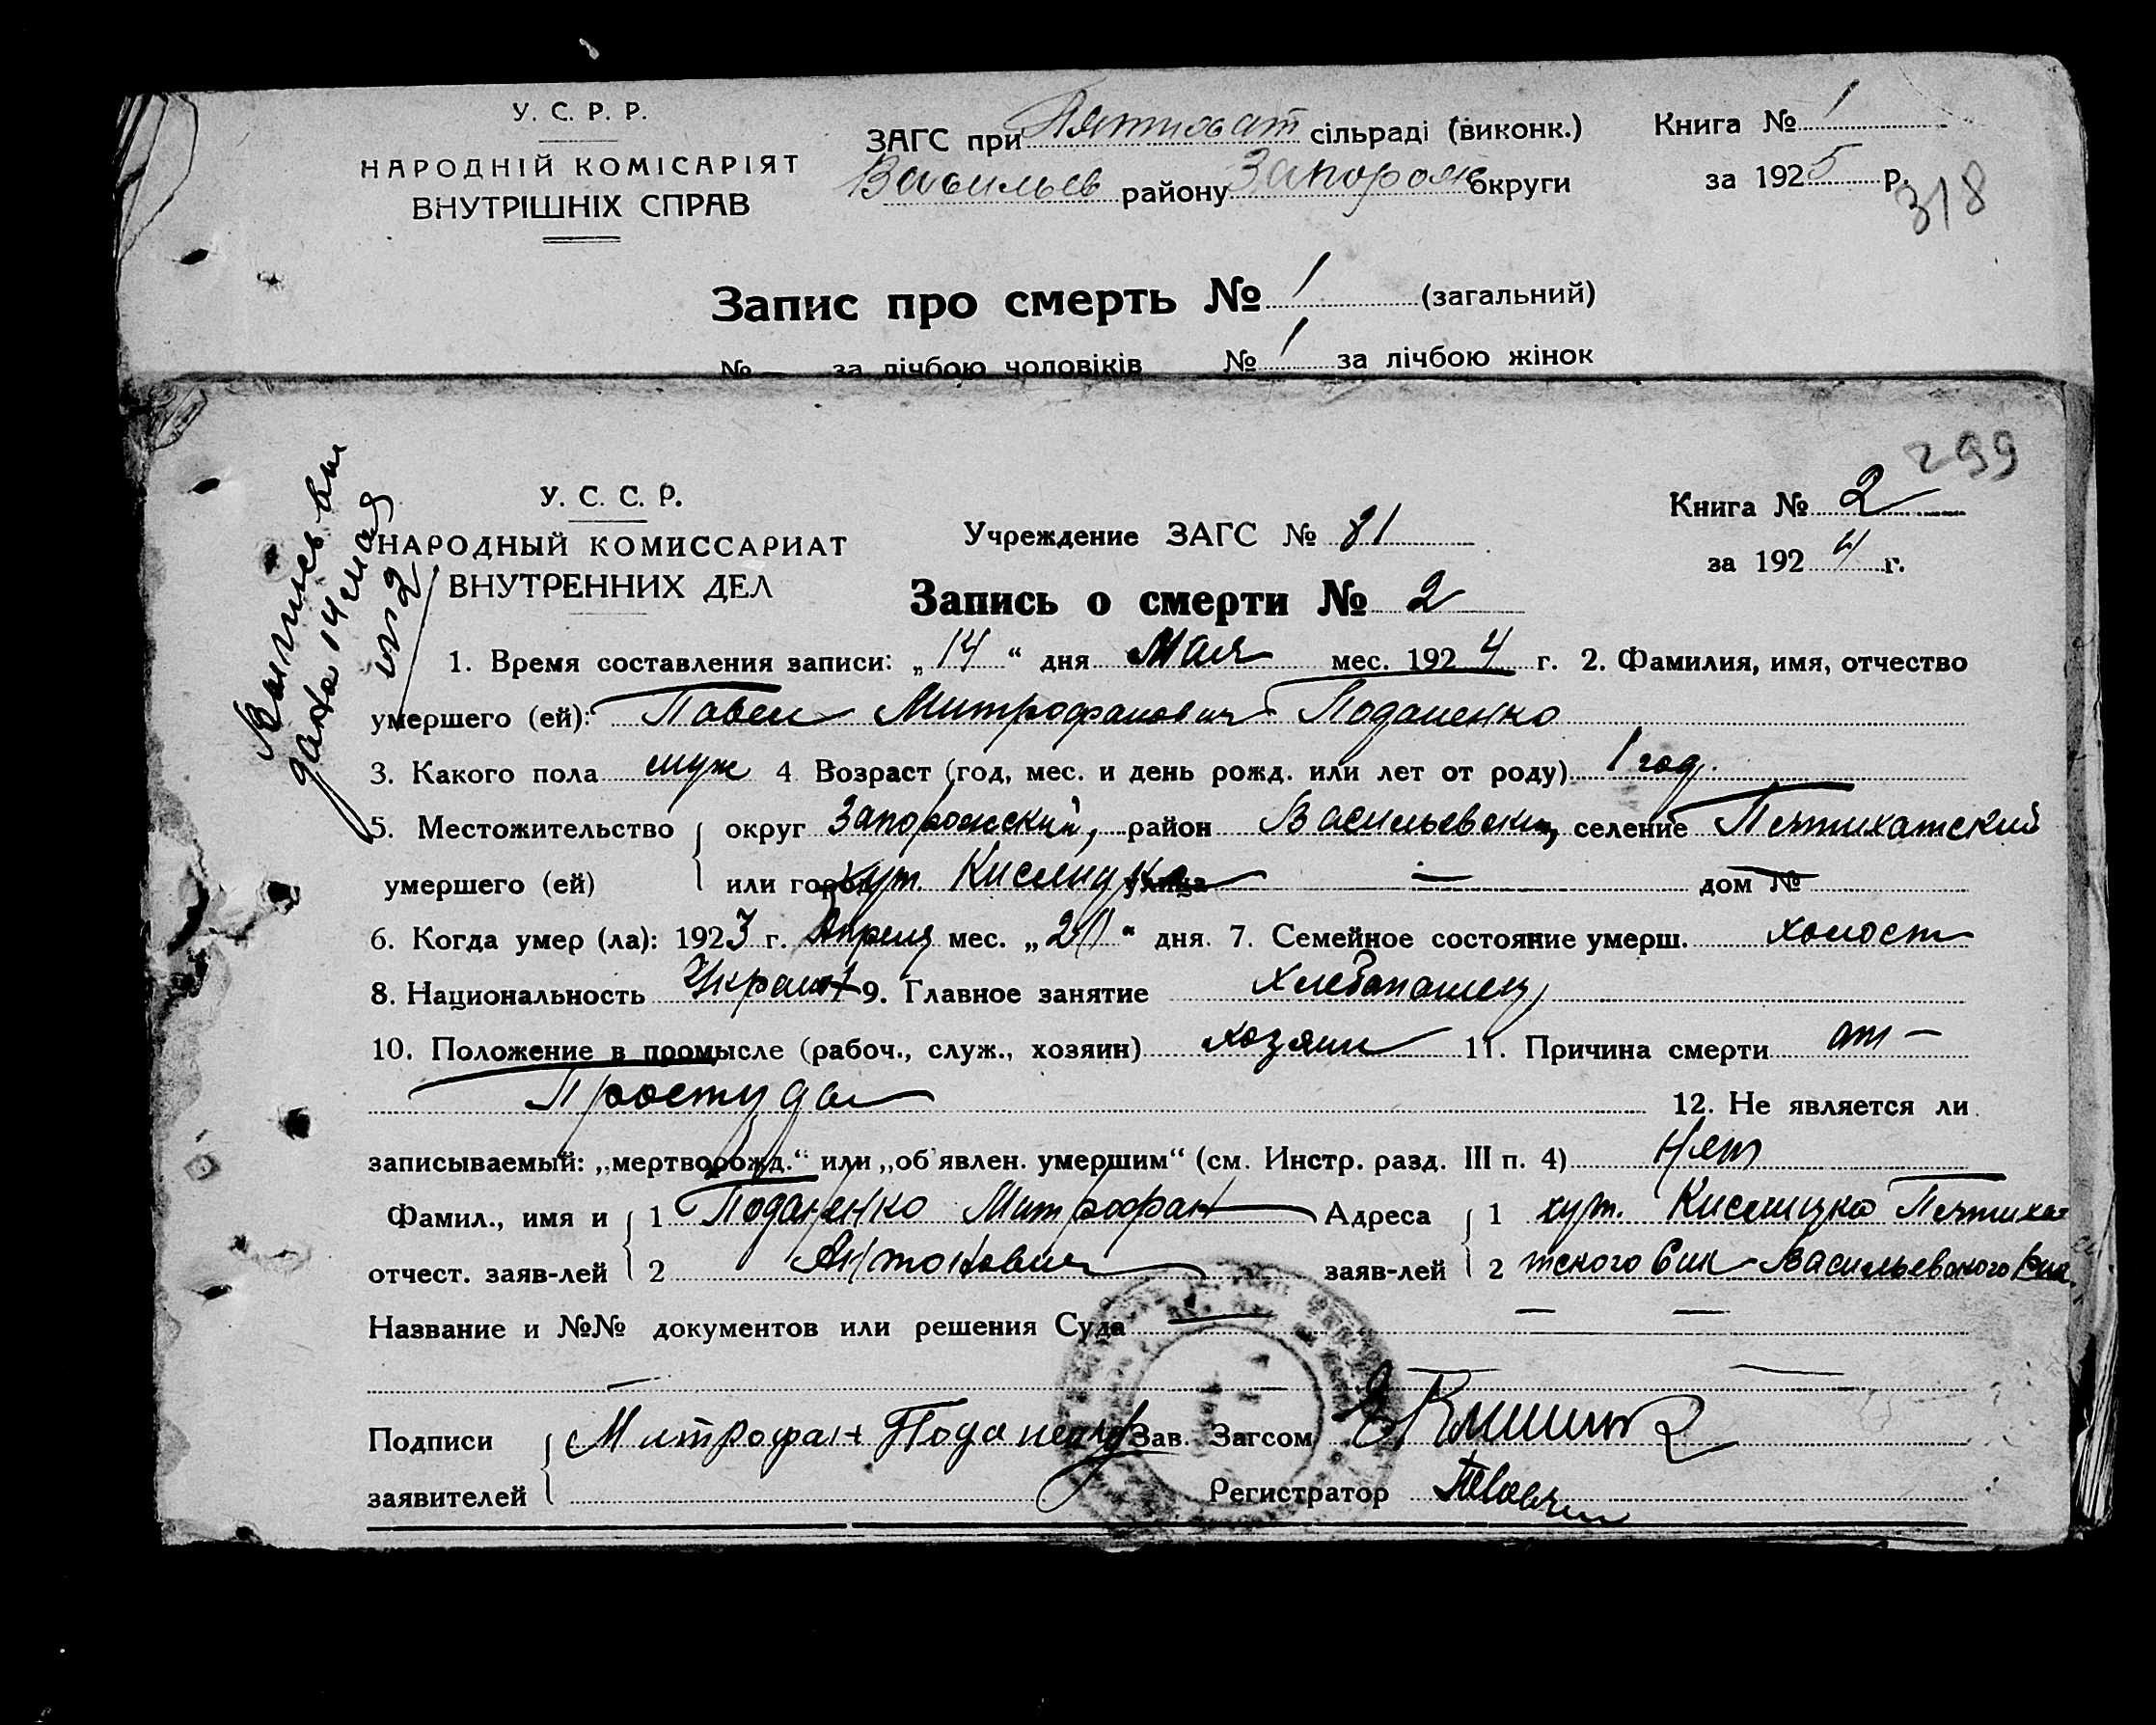 У. С. Р. Р.
НАРОДНІЙ КОМІСАРІЯТ
ВНУТРІШНІХ СПРАВ
ЗАГС при Пятихат сільраді (виконк.)
Васильев району Запорож округи
Книга № 1
за 1925 р.
318
Запис про смерть № 1 (загальний)
№ за лічбою чоловіків № 1 за лічбою жінок
299
У. С. С. Р.
НАРОДНЫЙ КОМИССАРИАТ
ВНУТРЕННИХ ДЕЛ
Учреждение ЗАГС № 81
Книга № 2
за 1924 г.
Запись о смерти № 2
дана 14 мая
№ 2
1. Время составления записи: „14“ дня Мая мес. 1924 г. 2. Фамилия, имя, отчество
умершего (ей): Павел Митрофанович Поданенко
3. Какого пола муж 4 Возраст (год, мес. и день рожд. или лет от роду) 1 год.
5. Местожительство округ Запорожский, район Васильевский, селение Пятихатский
умершего (ей) или город хут. Кислицка улица — дом №
6. Когда умер (ла): 1923 г. Апреля мес. „20“ дня. 7. Семейное состояние умерш. холост
8. Национальность Украин 9. Главное занятие хлебопашец
10. Положение в промысле (рабоч., служ., хозяин) хозяин 11. Причина смерти от —
Простуды 12. Не является ли
записываемый: „мертворожд.“ или „об'явлен. умершим“ (см. Инстр. разд. III п. 4) Нет
Фамил., имя и 1 Поданенко Митрофан Адреса 1 хут. Кислицка Пятиха-
отчест. заяв-лей 2 Антонович заяв-лей 2 тского Васильевского
Название и №№ документов или решения Суда — — —
Подписи Митрофан Поданенко Зав. Загсом
заявителей Регистратор